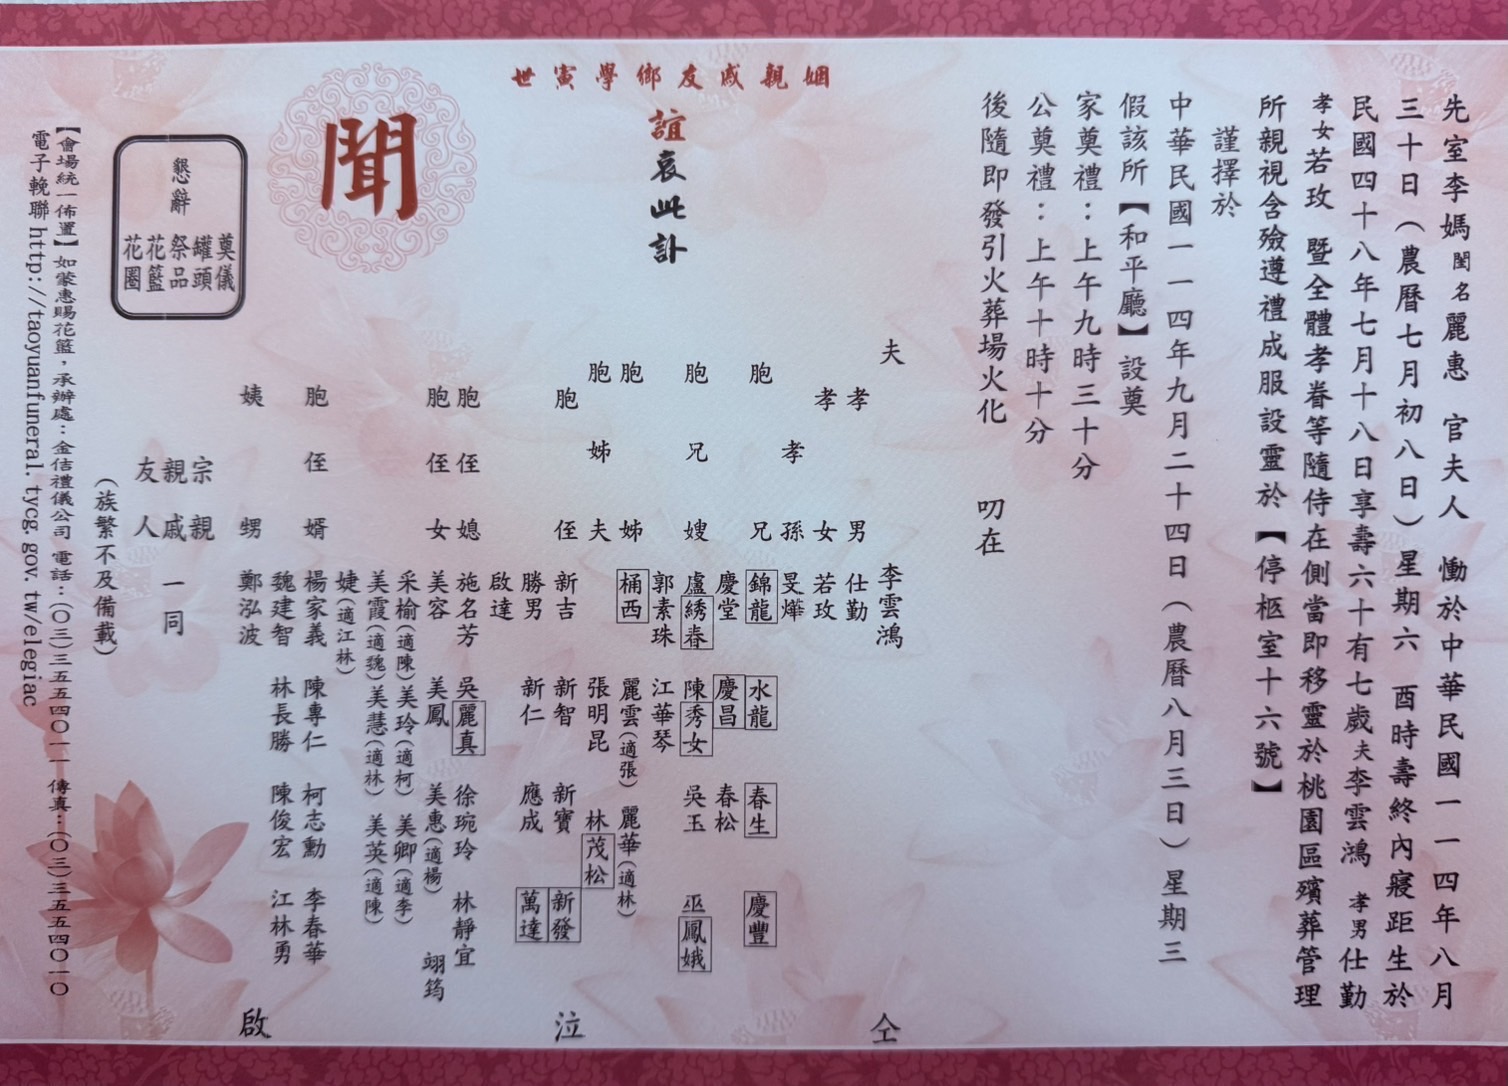 先室李媽閨名麗惠 官夫人 慟於中華民國一一四年八月
三十日(農曆七月初八日)星期六 酉時壽終內寢距生於
民國四十八年七月十八日享壽六十有七歲夫李雲鴻 孝男仕勤
孝女若玫 暨全體孝眷等隨侍在側當即移靈於桃園區殯葬管理
所親視含殮遵禮成服設靈於【停柩室十六號】
謹擇於
中華民國一一四年九月二十四日(農曆八月三日)星期三
假該所【和平廳】設奠
家奠禮:上午九時三十分
公奠禮:上午十時十分
後隨即發引火葬場火化 叨在
姻親戚友鄉學寅世
誼哀此訃
聞
夫 李雲鴻 仝
孝男 仕勤
孝女 若玫
孝孫 旻燁
胞兄 錦龍 水龍 春生 慶豐
慶堂 慶昌 春松
胞兄嫂 盧綉春 陳秀女 吳玉 巫鳳娥
郭素珠 江華琴
胞姊 桶西 麗雲(適張) 麗華(適林)
胞姊夫 張明昆 林茂松
胞侄 新吉 新智 新寶 新發 泣
勝男 新仁 應成 萬達
啟達
胞侄媳 施名芳 吳麗真 徐琬玲 林靜宜
胞侄女 美容 美鳳 美惠(適楊) 翊筠
采榆(適陳) 美玲(適柯) 美卿(適李)
美霞(適魏) 美慧(適林) 美英(適陳)
婕(適江林)
胞侄婿 楊家義 陳專仁 柯志勳 李春華
魏建智 林長勝 陳俊宏 江林勇
姨甥 鄭泓波 啟
宗親
親戚一同
友人
(族繁不及備載)
懇辭
奠儀
罐頭
祭品
花籃
花圈
【會場統一佈置】如蒙惠賜花籃,承辦處:金佶禮儀公司 電話:(〇三)三五五四〇一一 傳真:(〇三)三五五四〇一〇
電子輓聯http://taoyuanfuneral.tycg.gov.tw/elegiac